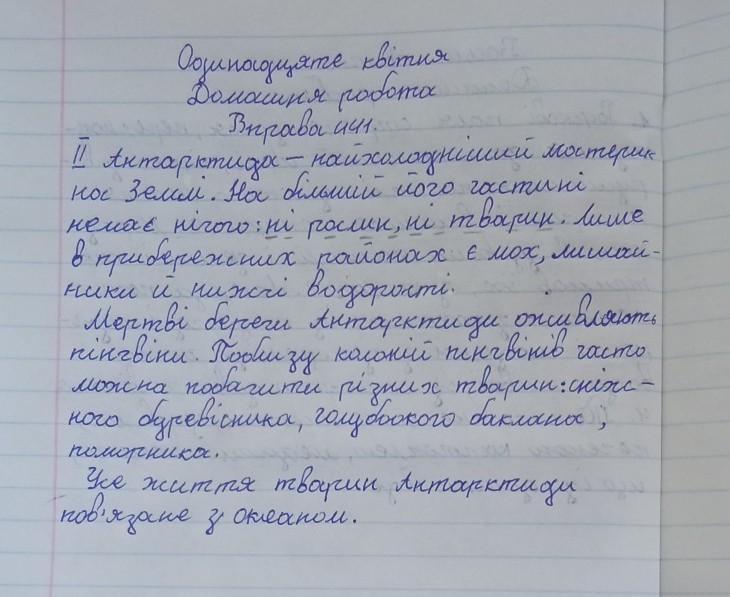 Одинадцяте квітня
Домашня робота
Вправа 441.
II Антарктида – найхолодніший мотерик
нос Землі. На більшій його частині
немає нічого: ні рослин, ні тварин. Лише
в прибережних районах є мох, лишай-
ники й нижчі водорості.
Мертві береги Антарктиди оживляють
пінгвіни. Поблизу колоній пінгвінів часто
можна побачити різних тварин: сніж-
ного буревісника, голубоокого баклана,
поморника.
Усе життя тварин Антарктиди
пов'язане з океаном.